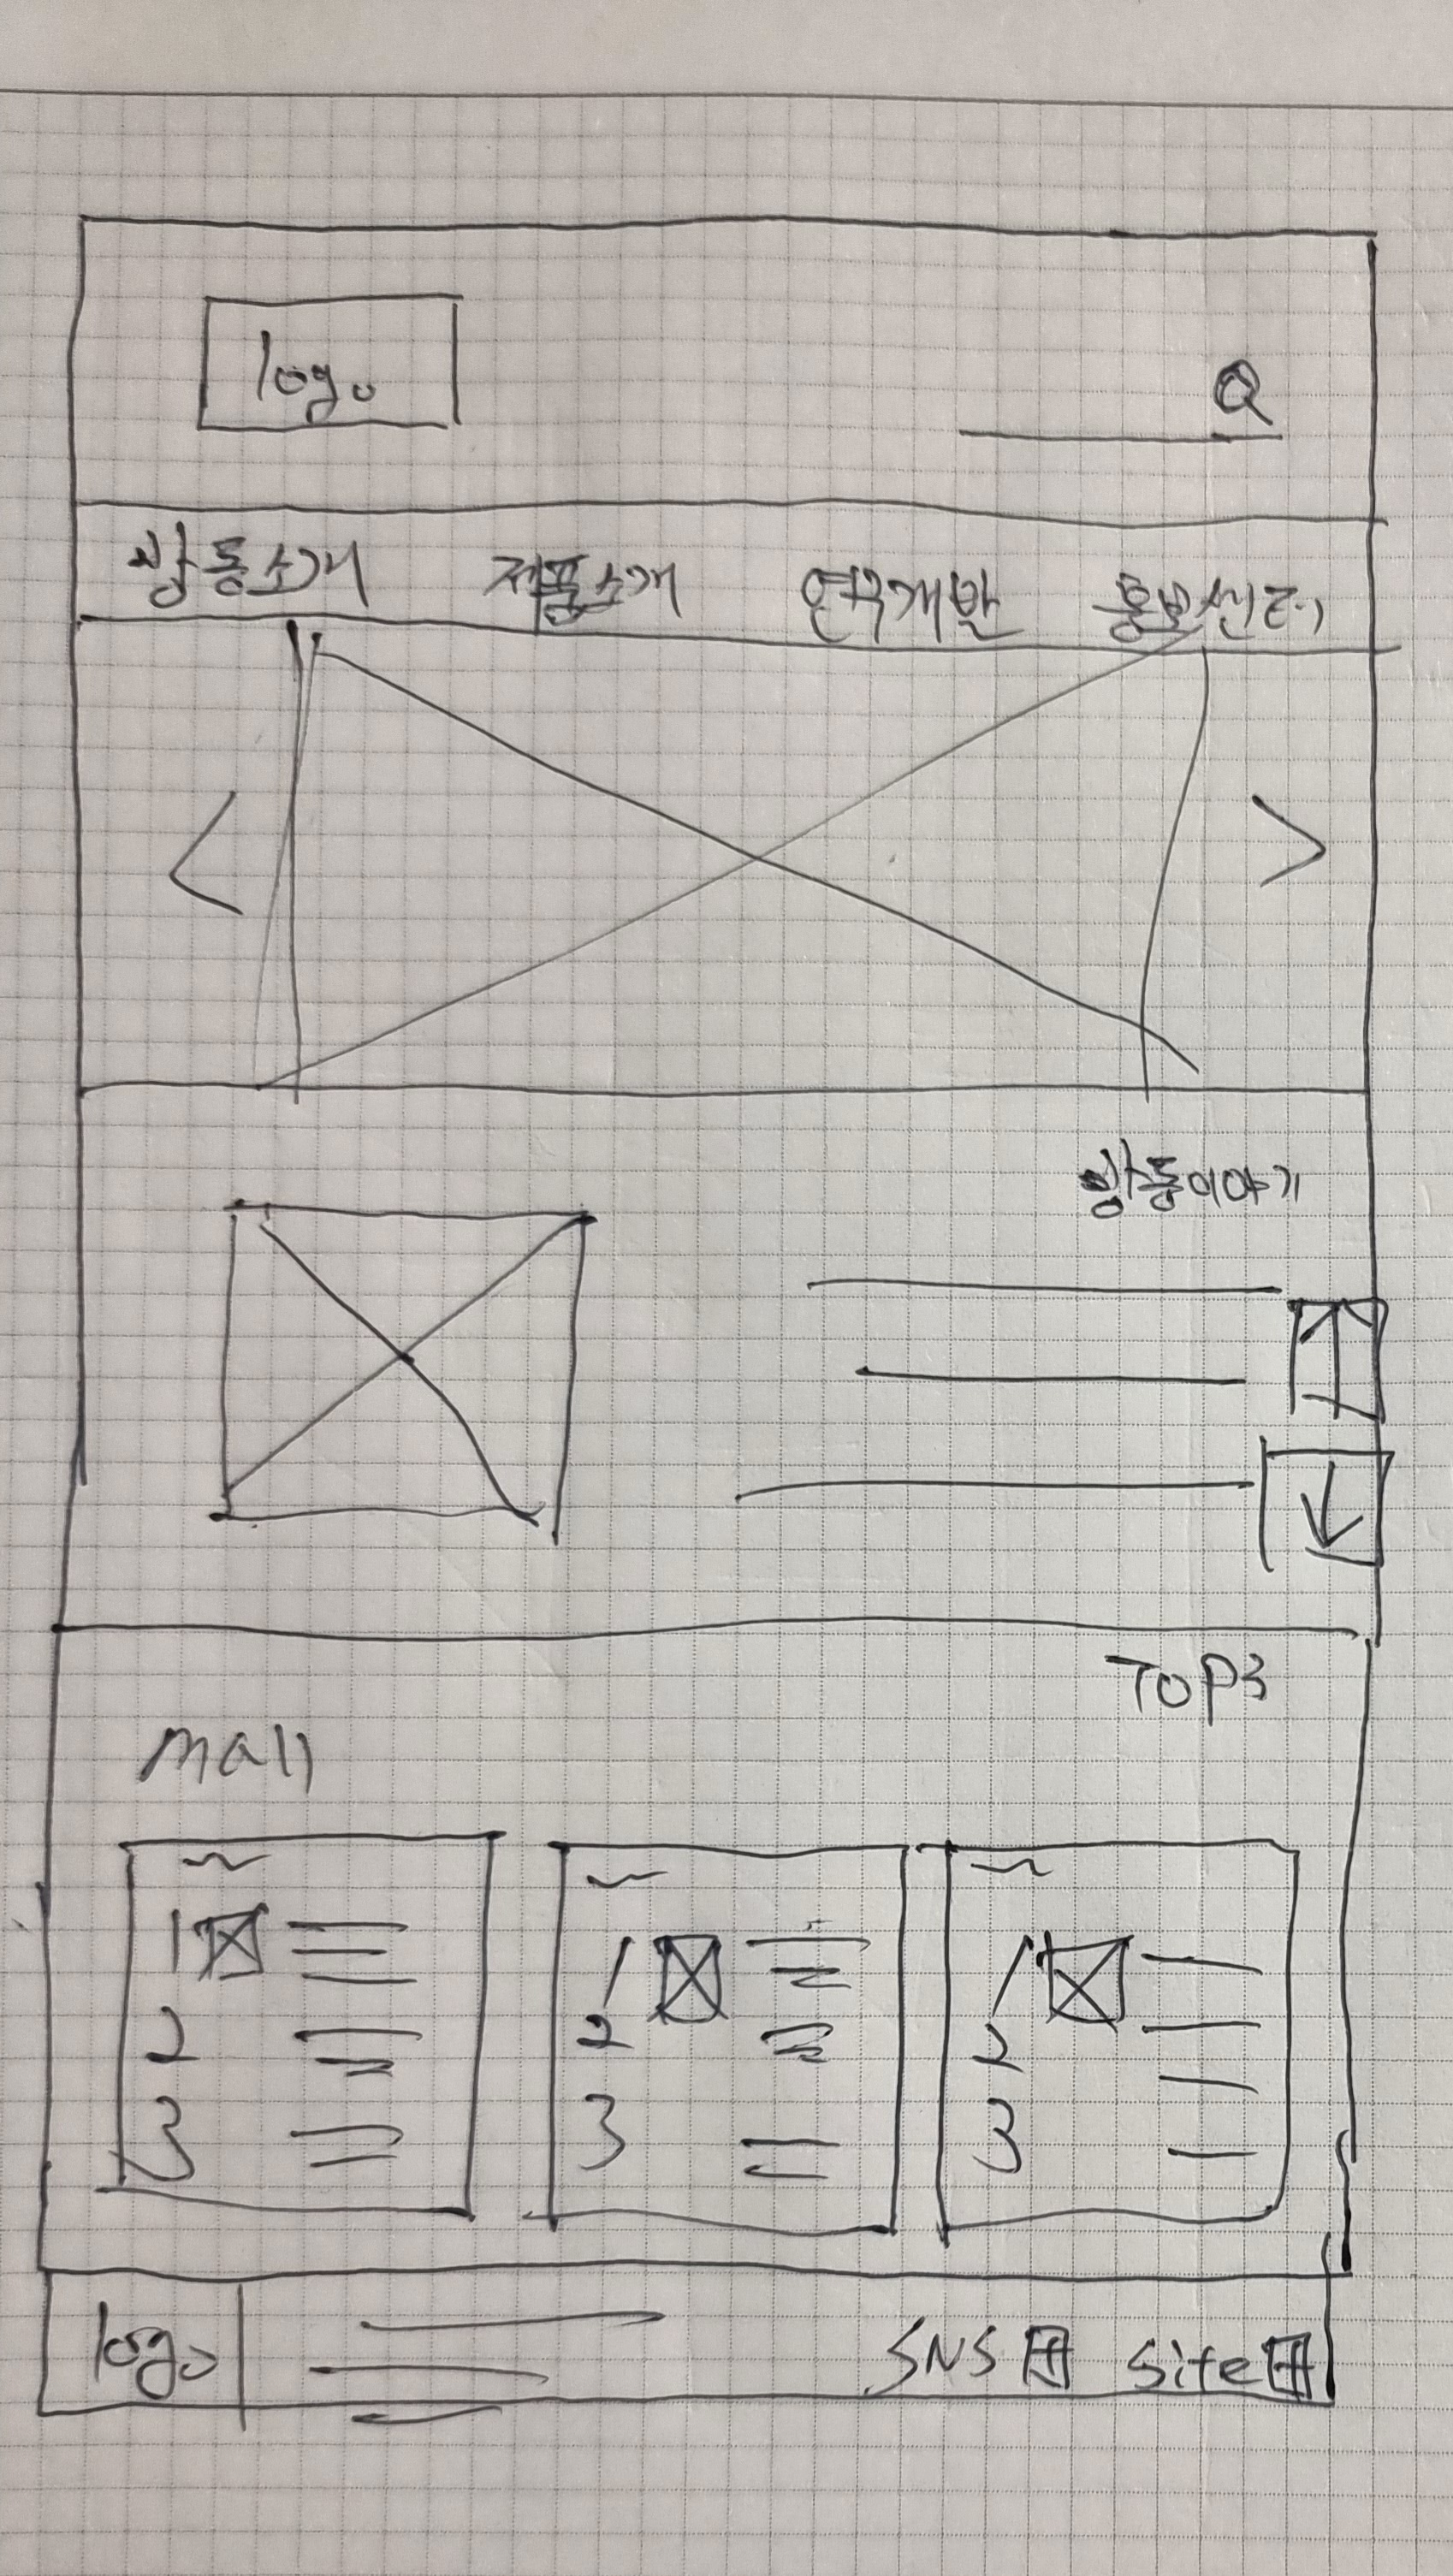 logo
광동소개 제품소개 연구개발 홍보센터
광동이야기
TOP3
mall
1 1 1
2 2 2
3 3 3
logo SNS Site